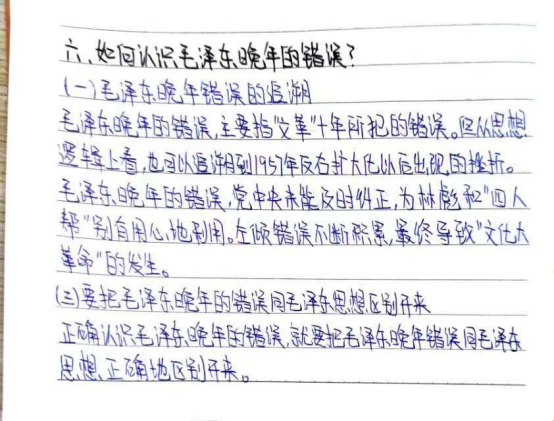 六、如何认识毛泽东晚年的错误?
(一)毛泽东晚年错误的追溯
毛泽东晚年的错误,主要指"文革"十年所犯的错误。但从思想
逻辑上看,也可以追溯到1957年反右扩大化以后出现的挫折。
毛泽东晚年的错误,党中央未能及时纠正,为林彪和"四人
帮"别有用心地利用。左倾错误不断积累,最终导致"文化大
革命"的发生。
(三)要把毛泽东晚年的错误同毛泽东思想区别开来
正确认识毛泽东晚年的错误,就要把毛泽东晚年错误同毛泽东
思想正确地区别开来。